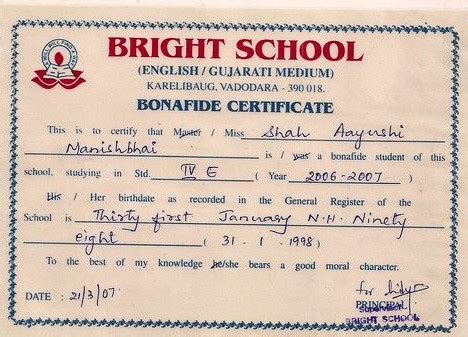 BRIGHT SCHOOL
(ENGLISH / GUJARATI MEDIUM)
KARELIBAUG, VADODARA - 390 018.
BONAFIDE CERTIFICATE
This is to certify that Master / Miss Shah Aayushi
Manishbhai is / was a bonafide student of this
school, studying in Std. IV E ( Year 2006-2007 )
His / Her birthdate as recorded in the General Register of the
School is Thirty first January N.H. Ninety
eight ( 31 - 1 - 1998 )
To the best of my knowledge he/she bears a good moral character.
for
DATE : 21/3/07 PRINCIPAL
Supervisor
BRIGHT SCHOOL